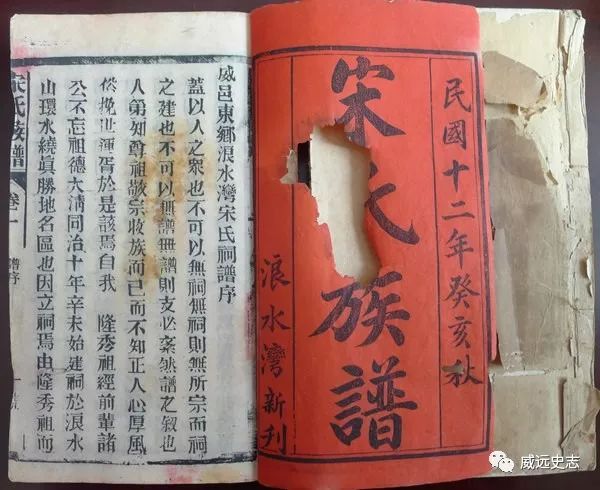 民國十二年癸亥秋
宋氏族譜
浪水灣新刋
威邑東鄉浪水灣宋氏祠譜序
蓋以人之眾也不可以無祠無祠則無所宗而祠
之建也不可以無譜無譜則支必紊然譜之敘也
人第知尊祖敬宗收族而已而不知正人心厚風
俗挽世運胥於是該焉自我 隆秀祖經前輩諸
公不忘祖德大淸同治十年辛未始建祠於浪水
山環水繞眞勝地名區也因立祠焉由隆秀祖而
宋氏族譜 卷一 譜序
威远史志